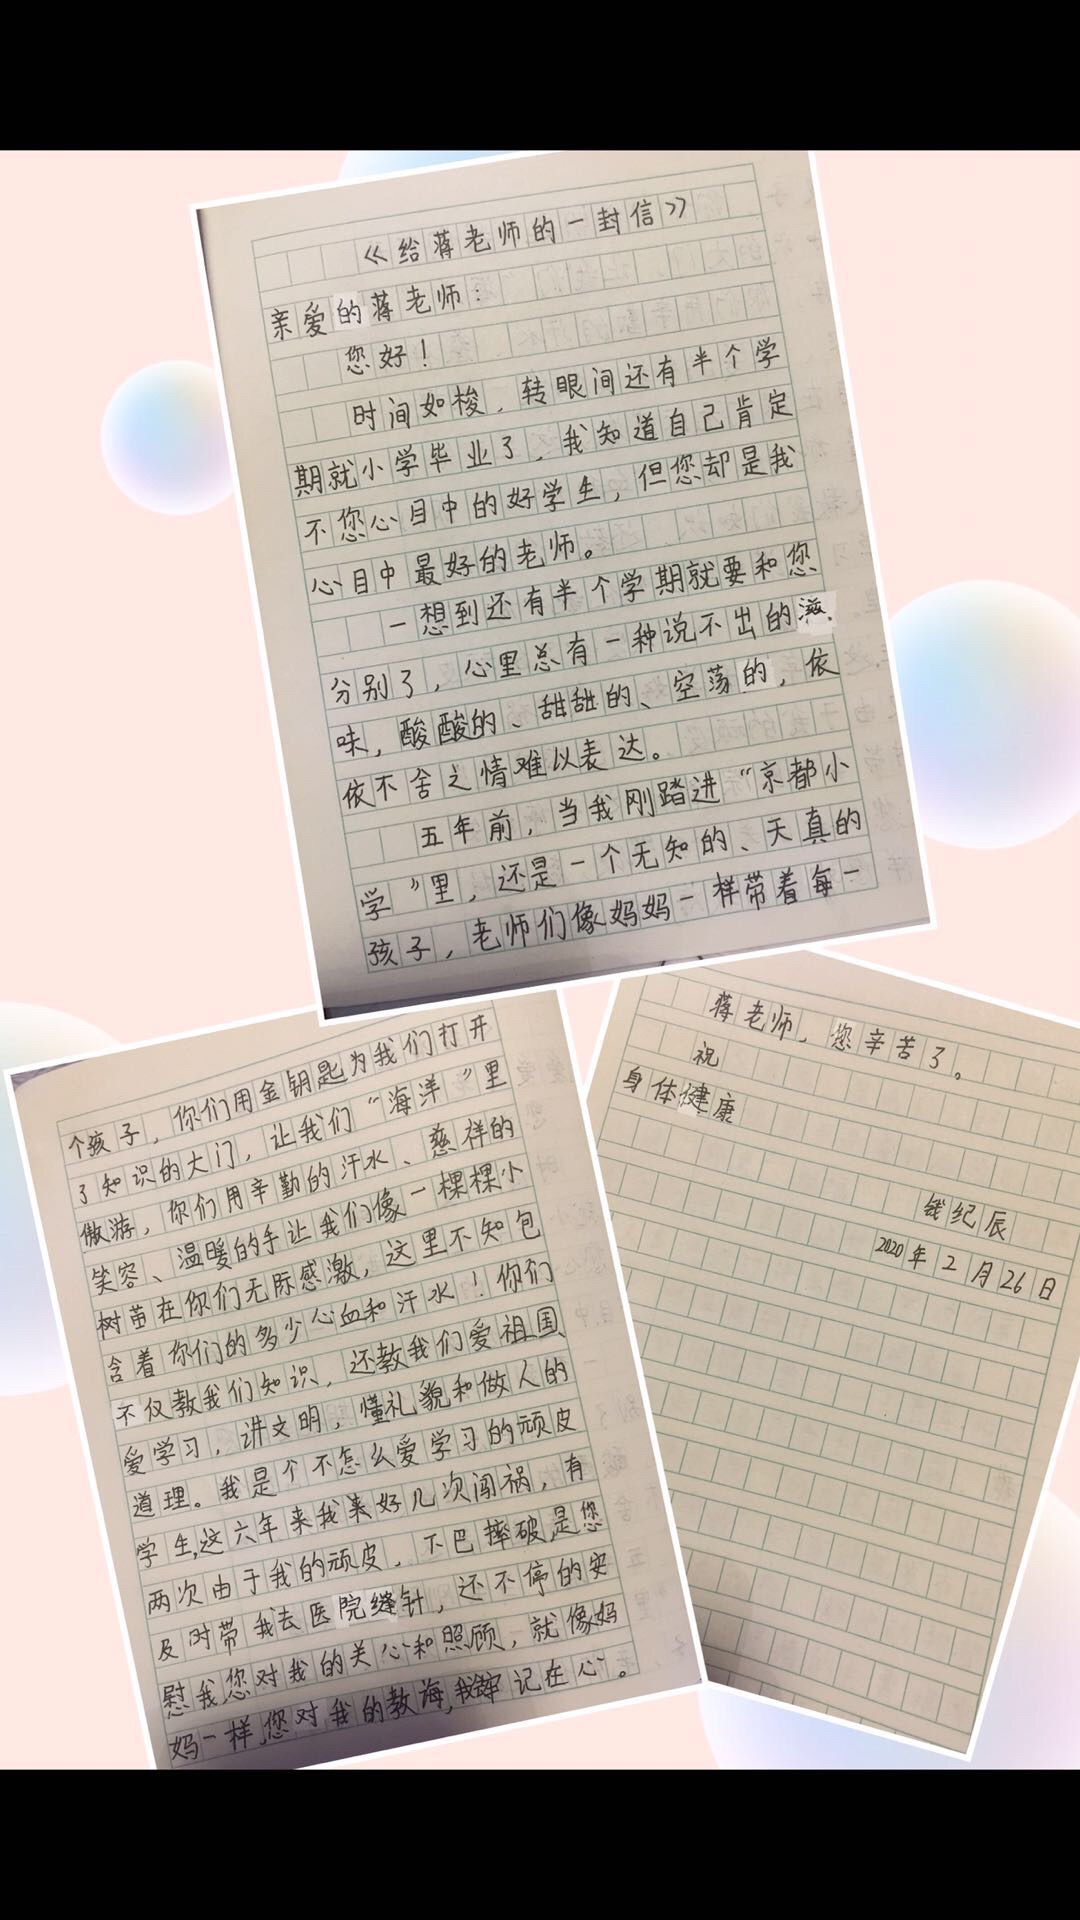 《给蒋老师的一封信》
亲爱的蒋老师：
您好！
时间如梭，转眼间还有半个学
期就小学毕业了，我知道自己肯定
不您心目中的好学生，但您却是我
心目中最好的老师。
一想到还有半个学期就要和您
分别了，心里总有一种说不出的滋
味，酸酸的、甜甜的、空荡的，依
依不舍之情难以表达。
五年前，当我刚踏进“京都小
学”里，还是一个无知的、天真的
孩子，老师们像妈妈一样带着每一
个孩子，你们用金钥匙为我们打开
了知识的大门，让我们“海洋”里
傲游，你们用辛勤的汗水、慈祥的
笑容、温暖的手让我们像一棵棵小
树苗在你们无际感激，这里不知包
含着你们的多少心血和汗水！你们
不仅教我们知识，还教我们爱祖国
爱学习，讲文明，懂礼貌和做人的
道理。我是个不怎么爱学习的顽皮
学生，这六年来我来好几次闯祸，有
两次由于我的顽皮，下巴摔破，是您
及时带我去医院缝针，还不停的安
慰我，您对我的关心和照顾，就像妈
妈一样，您对我的教诲，我牢记在心。
蒋老师，您辛苦了。
祝
身体健康
钱纪辰
2020年2月26日